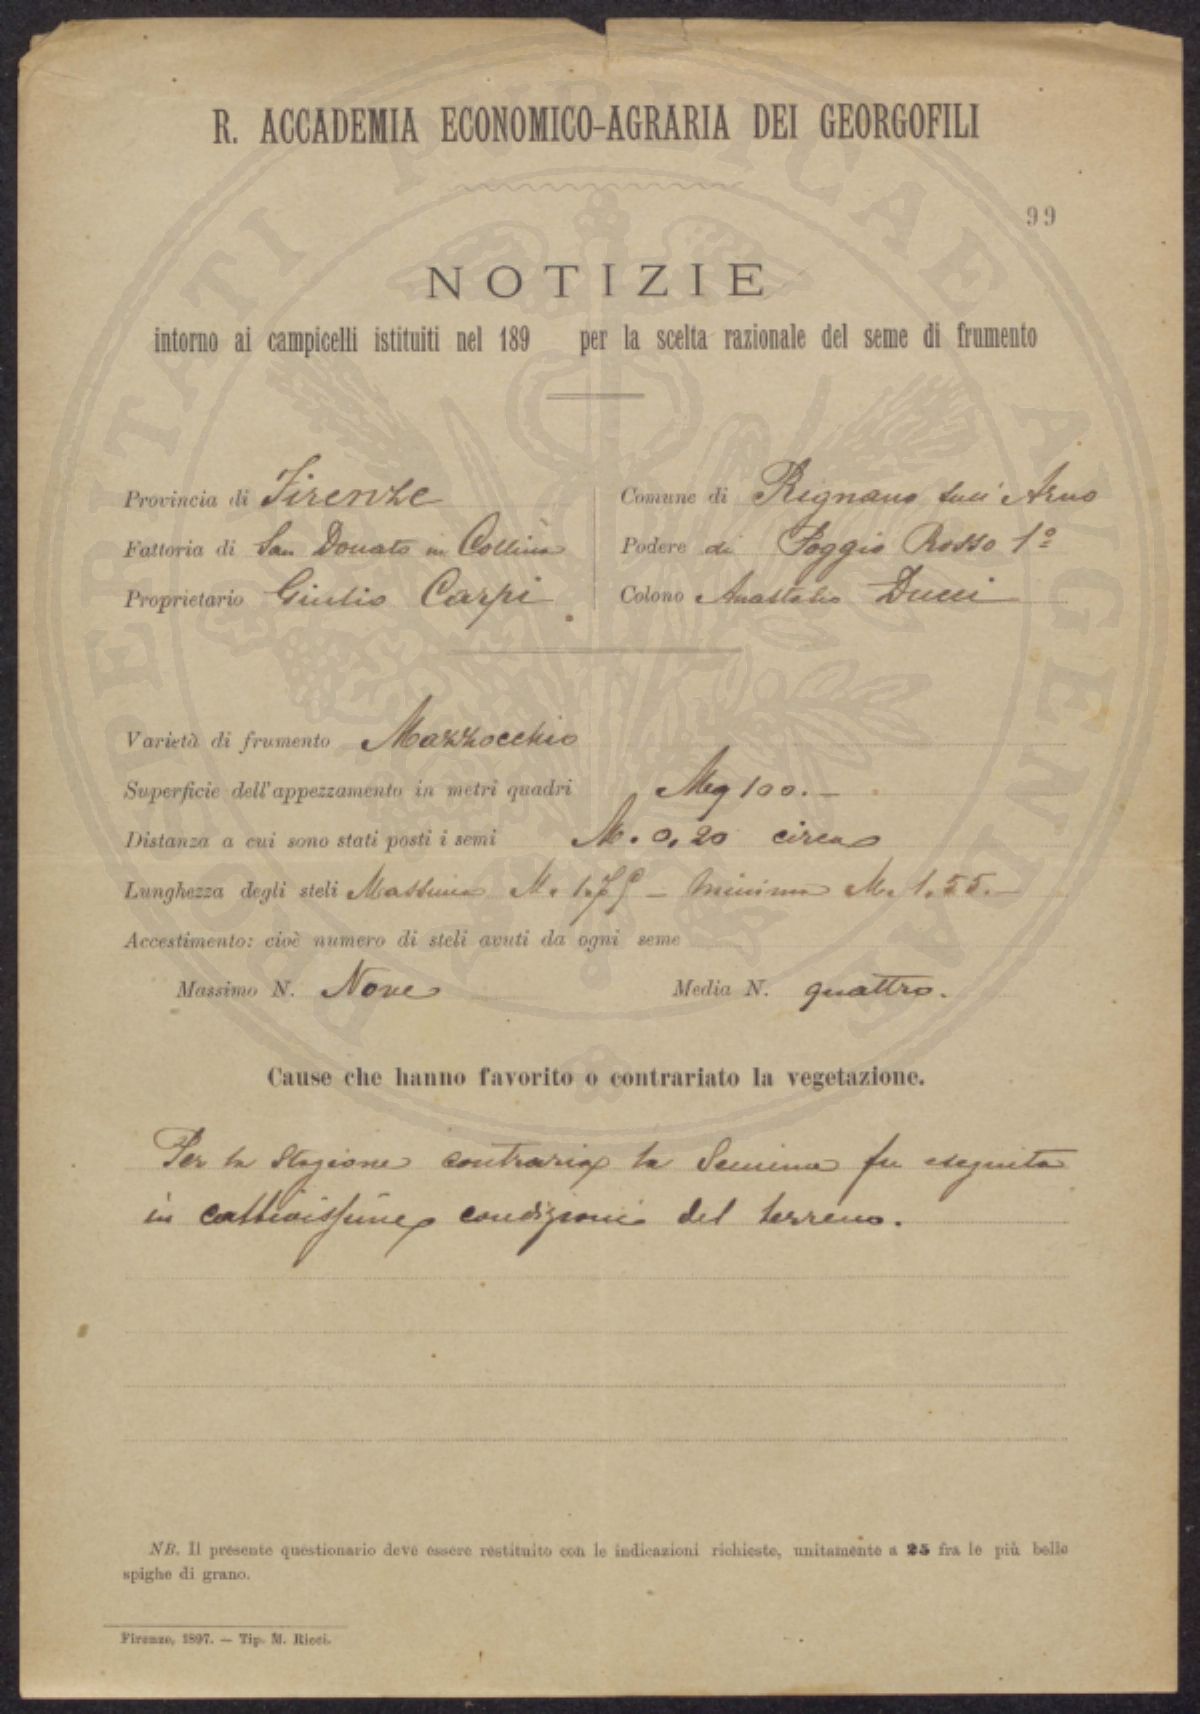 R. ACCADEMIA ECONOMICO-AGRARIA DEI GEORGOFILI
99
NOTIZIE
intorno ai campicelli istituiti nel 189 per la scelta razionale del seme di frumento
Provincia di Firenze
Comune di Rignano sull' Arno
Fattoria di San Donato in Collina
Podere di Poggio Rosso 1º
Proprietario Giulio Carpi
Colono Anastasio Ducci
Varietà di frumento Mazzocchio
Superficie dell'appezzamento in metri quadri Mq 100.-
Distanza a cui sono stati posti i semi M. 0,20 circa
Lunghezza degli steli Massima M. - minima M. 1.55.-
Accestimento: cioè numero di steli avuti da ogni seme
Massimo N. Nove Media N. quattro.
Cause che hanno favorito o contrariato la vegetazione.
Per la Stagione contraria la Semina fu eseguita
in cattivissime condizioni del terreno.
NB. Il presente questionario deve essere restituito con le indicazioni richieste, unitamente a 25 fra le più belle
spighe di grano.
Firenze, 1897. — Tip. M. Ricci.
PROSPERITATI PUBLICAE AUGENDAE